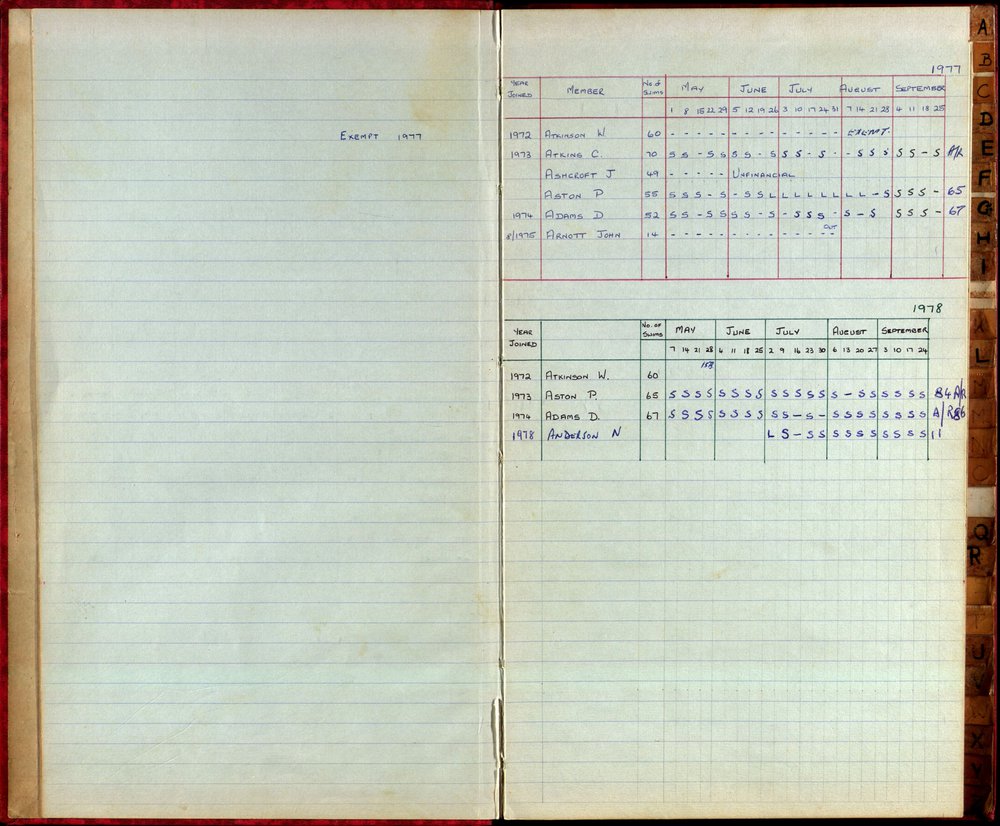 EXEMPT 1977
1977
YEAR JOINED MEMBER No of SWIMS MAY JUNE JULY AUGUST SEPTEMBER
1 8 15 22 29 5 12 19 26 3 10 17 24 31 7 14 21 28 4 11 18 25
1972 ATKINSON W 60 - - - - - - - - - - - - - - EXEMPT.
1973 ATKINS C. 70 S S - S S S S - S S S - S - - S S S S S - S A/R
ASHCROFT J 49 - - - - - UNFINANCIAL
ASTON P 55 S S S - S - S S L L L L L L L L - S S S S - 65
1974 ADAMS D 52 S S - S S S S - S - S S S - S - S S S S - 67
8/1975 ARNOTT JOHN 14 - - - - - - - - - - - - - - OUT
1978
YEAR JOINED No. of SWIMS MAY JUNE JULY AUGUST SEPTEMBER
7 14 21 28 4 11 18 25 2 9 16 23 30 6 13 20 27 3 10 17 24
1972 ATKINSON W. 60
1973 ASTON P. 65 S S S S S S S S S S S S S S - S S S S S S 84 A/R
1974 ADAMS D. 67 S S S S S S S S S S - S - S S S S S S S S A/R 86
1978 ANDERSON N L S - S S S S S S S S S S 11
A
B
C
D
E
F
G
H
I
K
L
M
N
O
Q
R
T
U
V
W
X
Y